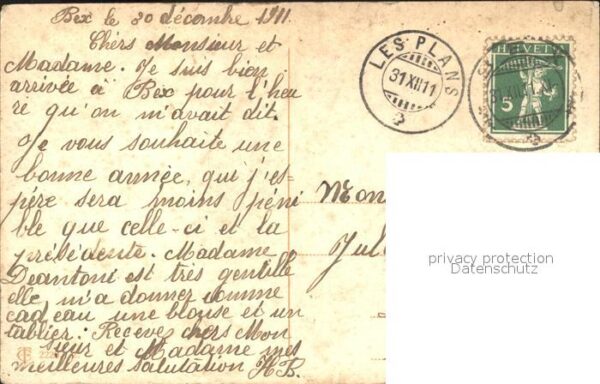 Bex le 30 décembre 1911.
Chers Monsieur et
Madame. Je suis bien
arrivée à Bex pour l'heu
re qu'on m'avait dit.
Je vous souhaite une
bonne année, qui j'es-
père sera moins péni
ble que celle-ci et la
précédente. Madame
Deantoni est très gentille
elle m'a donner comme
cadeau une blouse et un
tablier. Receve chers Mon
sieur et Madame mes
meilleures salutation H.B.
LES PLANS
31 XII 11
HELVETIA
5
Mon
Jul
privacy protection
Datenschutz